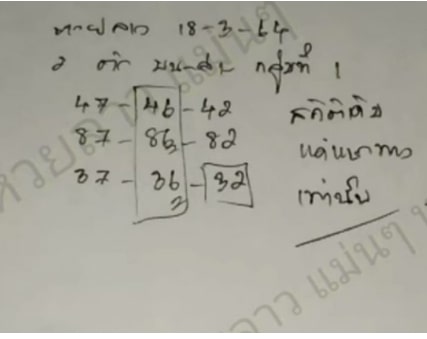 หวยลาว 18-3-64
2 ตัว บน-ล่าง กลุ่มที่ 1
47-46-42
87-86-82
37-36-32
สถิติ
แนวทาง
เท่านั้น
หวยลาว แม่นๆ
ลาว แม่นๆ